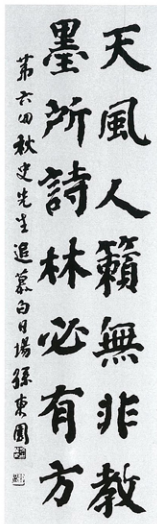 天風人籟無非教
墨所詩林必有方
第六回秋史先生追慕白日場 孫東圃